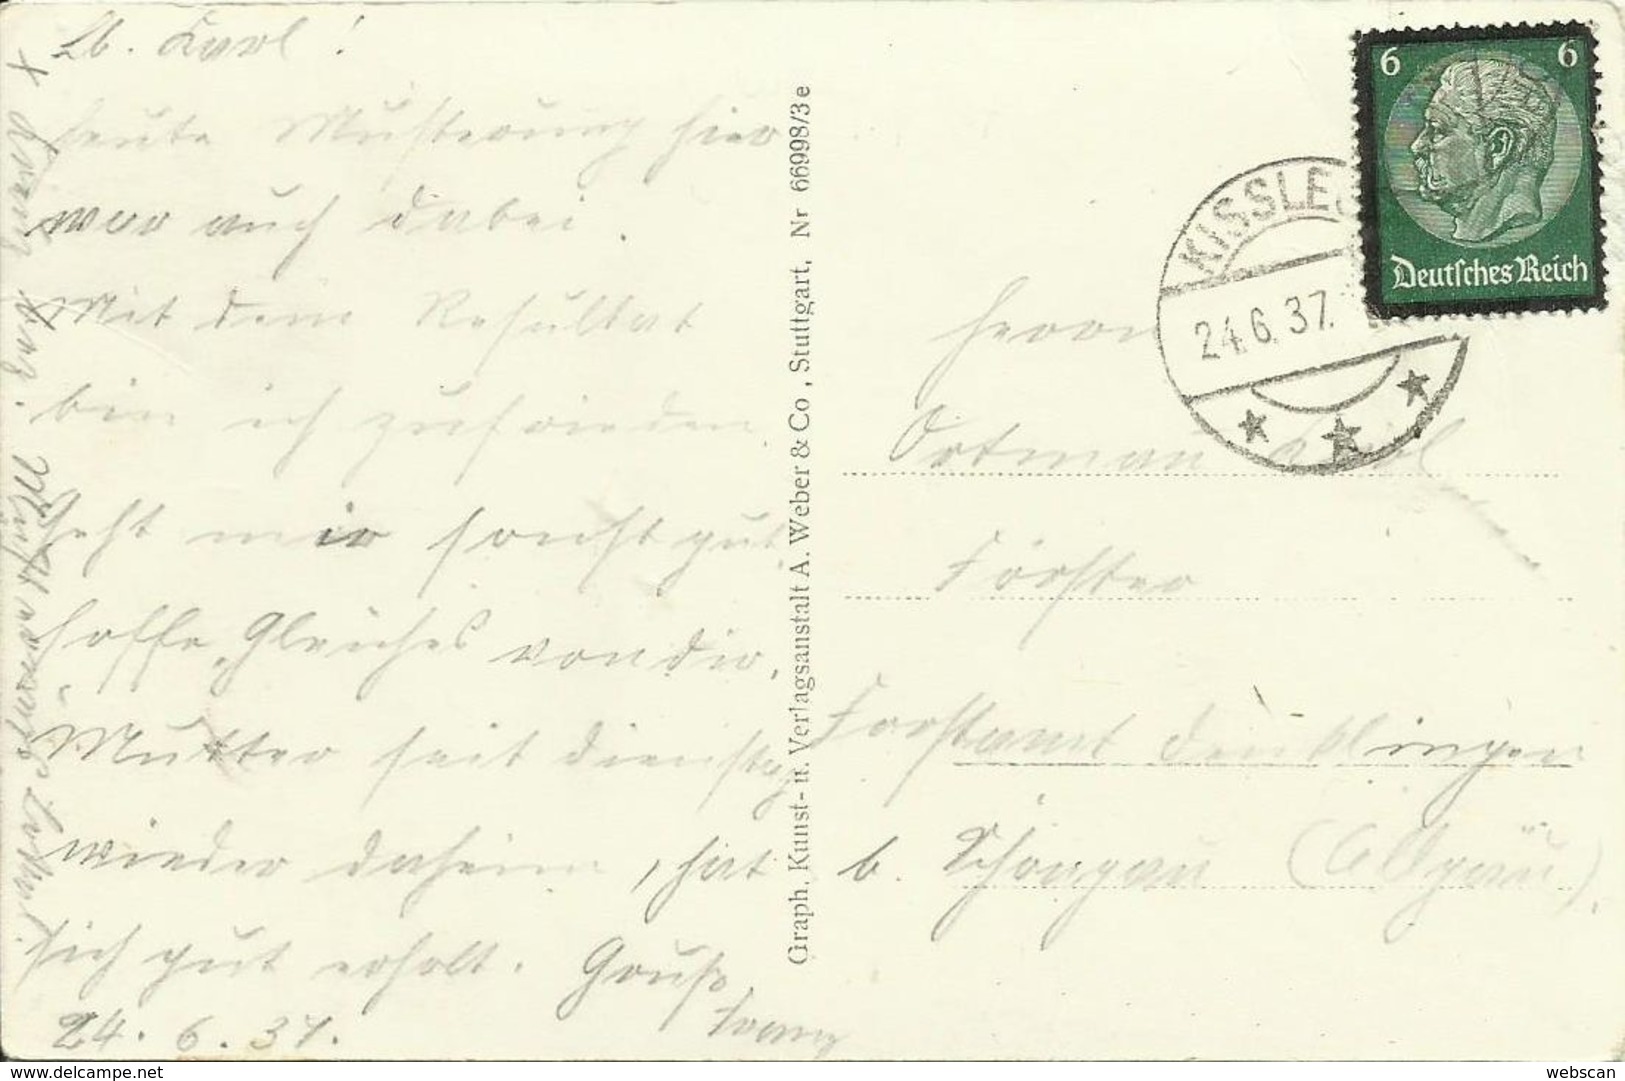 Lb. Karl!
heute Musterung hier
war auch dabei.
Mit dem Resultat
bin ich zufrieden.
Geht mir sonst gut,
hoffe „Gleiches" von dir.
Mutter seit dienstag
wieder daheim, hat
sich gut erholt. Gruß
Franz
24. 6. 37.
Graph. Kunst- u. Verlagsanstalt A. Weber & Co, Stuttgart. Nr 66998/3e
6 6
Deutsches Reich
KISSLEG
24.6.37.
Herrn
Ortmann Karl
Förster
Forstamt Denklingen
b. Schongau (Allgäu).
www.delcampe.net
webscan